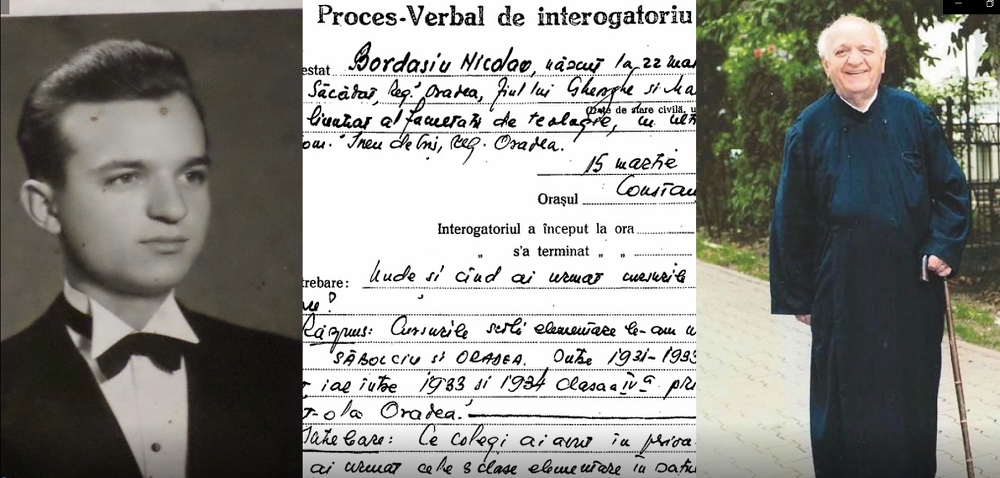 Proces-Verbal de interogatoriu
estat Bordașiu Nicolae, născut la 22 mar
Săcădat, Reg. Oradea, fiul lui Gheorghe si Ma
(Date de stare civilă, u
al facultății de teologie, în ult
com. Ineu de Criș, Reg. Oradea.
15 martie
Orașul Constan
Interogatoriul a început la ora
„ s'a terminat „ „
trebare: Unde si cînd ai urmat cursurile
re?
Răspuns: Cursurile scolii elementare le-am u
SĂBOLCIU si ORADEA. Între 1931-1933
iar între 1933 si 1934 clasa a IV a pri
-o la Oradea.
Întrebare: Ce colegi ai avut în prima
ai urmat cele 3 clase elementare în satu